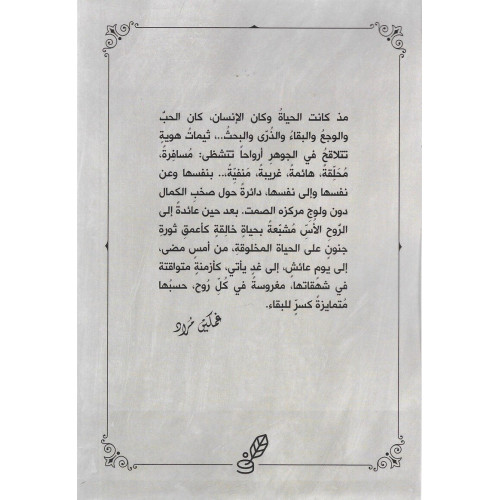 مذ كانت الحياةُ وكان الإنسان، كان الحبّ
والوجعُ والبقاءُ والذُرَى والبحثُ..، ثيمات هويةٍ
تتلاقحُ في الجوهرِ أرواحاً تتشظى: مُسافرةً،
مُحَلِّقةً، هائمةً، غريبةً، مَنفيّةً،.. بنفسها وعن
نفسها وإلى نفسها، دائرةً حول صخبِ الكمال
دون ولوجِ مركزه الصمت، بعد حين عائدةً إلى
الرَّوحِ الأُسّ مُشبّعةً بحياةٍ خالِقةٍ كأعمقِ ثورةِ
جنونٍ على الحياة المخلوقةِ، من أمسٍ مضى،
إلى يومٍ عائشٍ، إلى غدٍ يأتي، كأزمنةٍ متواقتة
في شهقاتها، مغروسةً في كلّ رُوح، حسبُها
مُتمايزةً كسرٍّ للبقاء.
غمكين مُراد